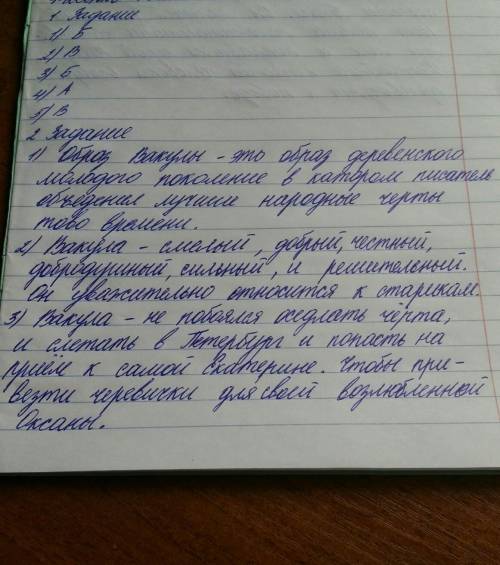 1 Задание
1) Б
2) В
3) Б
4) А
5) В
2 Задание
1) Образ Вакулы - это образ деревенского
молодого поколение в катором писатель
объеденил лучшие народные черты
того времени.
2) Вакула - смелый, добрый, честный,
добродушный, сильный, и решительный.
Он уважительно относится к старикам.
3) Вакула - не побоялся оседлать чёрта,
и слетать в Петербург и попасть на
приём к самой Екатерине. Чтобы при-
везти черевички для своей возлюбленной
Оксаны.